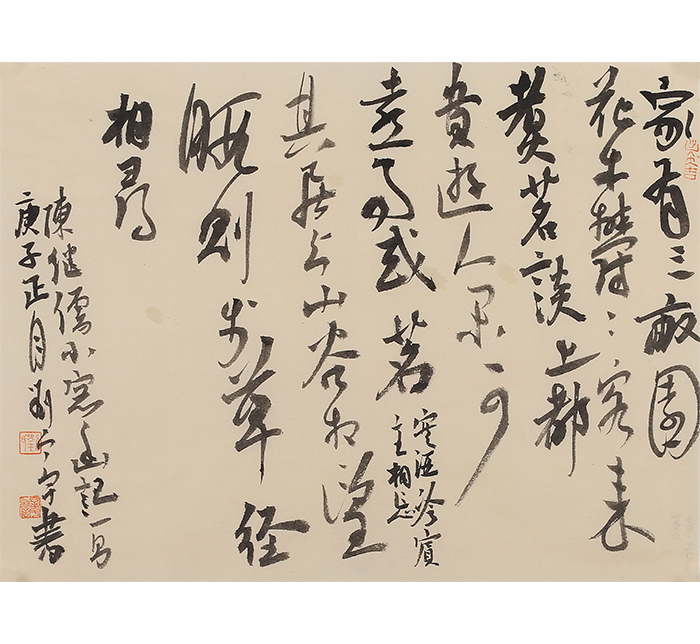 家有三畝園
花木欝〻客来
煮茗談上都
貴遊人间可
喜事或茗
寒酒冷賓
主相忘
其居与山谷相望
暇则步草径
相尋
陳继儒小窓幽記一
庚子正月劉書